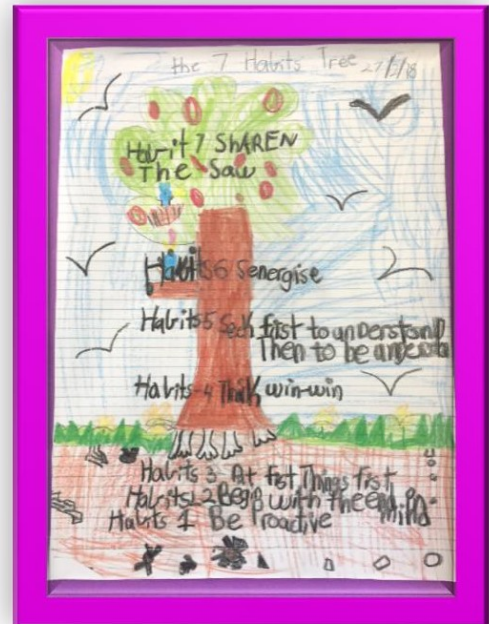 the 7 Habits Tree 27/3/18
Habit 7 ShAREN
The Saw
Habits 6 Senergise
Habits 5 Seck first to understand
Then to be
Habits 4 Think win-win
Habits 3 At fist Things first
Habits 2 Begin with the end
mind
Habits 1 Be Proactive